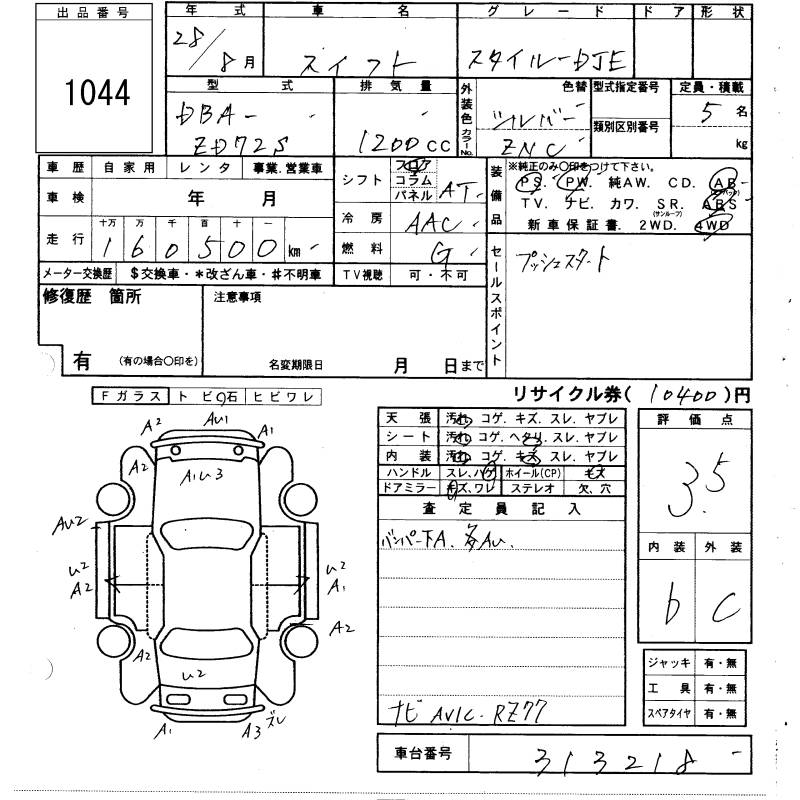 出品番号 年式 車名 グレード ドア 形状
1044 28/8月 スイフト スタイルーDJE
型式 排気量 外装色 色替 型式指定番号 定員・積載
DBA- シルバー 5名
ZD72S 1200cc カラーNo. ZNC 類別区別番号 kg
車歴 自家用 レンタ 事業.営業車 シフト フロア コラム パネル AT 装備品 ※純正のみ〇印をつけて下さい。
PS. PW. 純AW. CD. AB (エアバック)
車検 年 月 TV. ナビ. カワ. SR. (サンルーフ) ABS
冷房 AAC 新車保証書. 2WD. 4WD
走行 十万 万 千 百 十 一
160500km 燃料 G セールスポイント プッシュスタート
メーター交換歴 $交換車・*改ざん車・#不明車 TV視聴 可・不可
修復歴 箇所 注意事項
有 (有の場合〇印を) 名変期限日 月 日まで
リサイクル券(10400)円
Fガラス トビ石 ヒビワレ
天張 汚れ コゲ. キズ. スレ. ヤブレ 評価点
シート 汚れ コゲ. ヘタリ. スレ. ヤブレ
内装 汚れ コゲ. キズ. スレ. ヤブレ
ハンドル スレ、ハゲ ホイール(CP) キズ
ドアミラー キズ、ワレ ステレオ 欠、穴
3.5
査定員記入
バンパー下A. 各AU.
内装 外装
b c
A2 AU1 A1
A2 A1U3 A2
AU2
U2 A2 U2 A1
A2 A2
U2
A1 A3 ズレ
ジャッキ 有・無
工具 有・無
スペアタイヤ 有・無
ナビ AVIC-RZ77
車台番号 313218